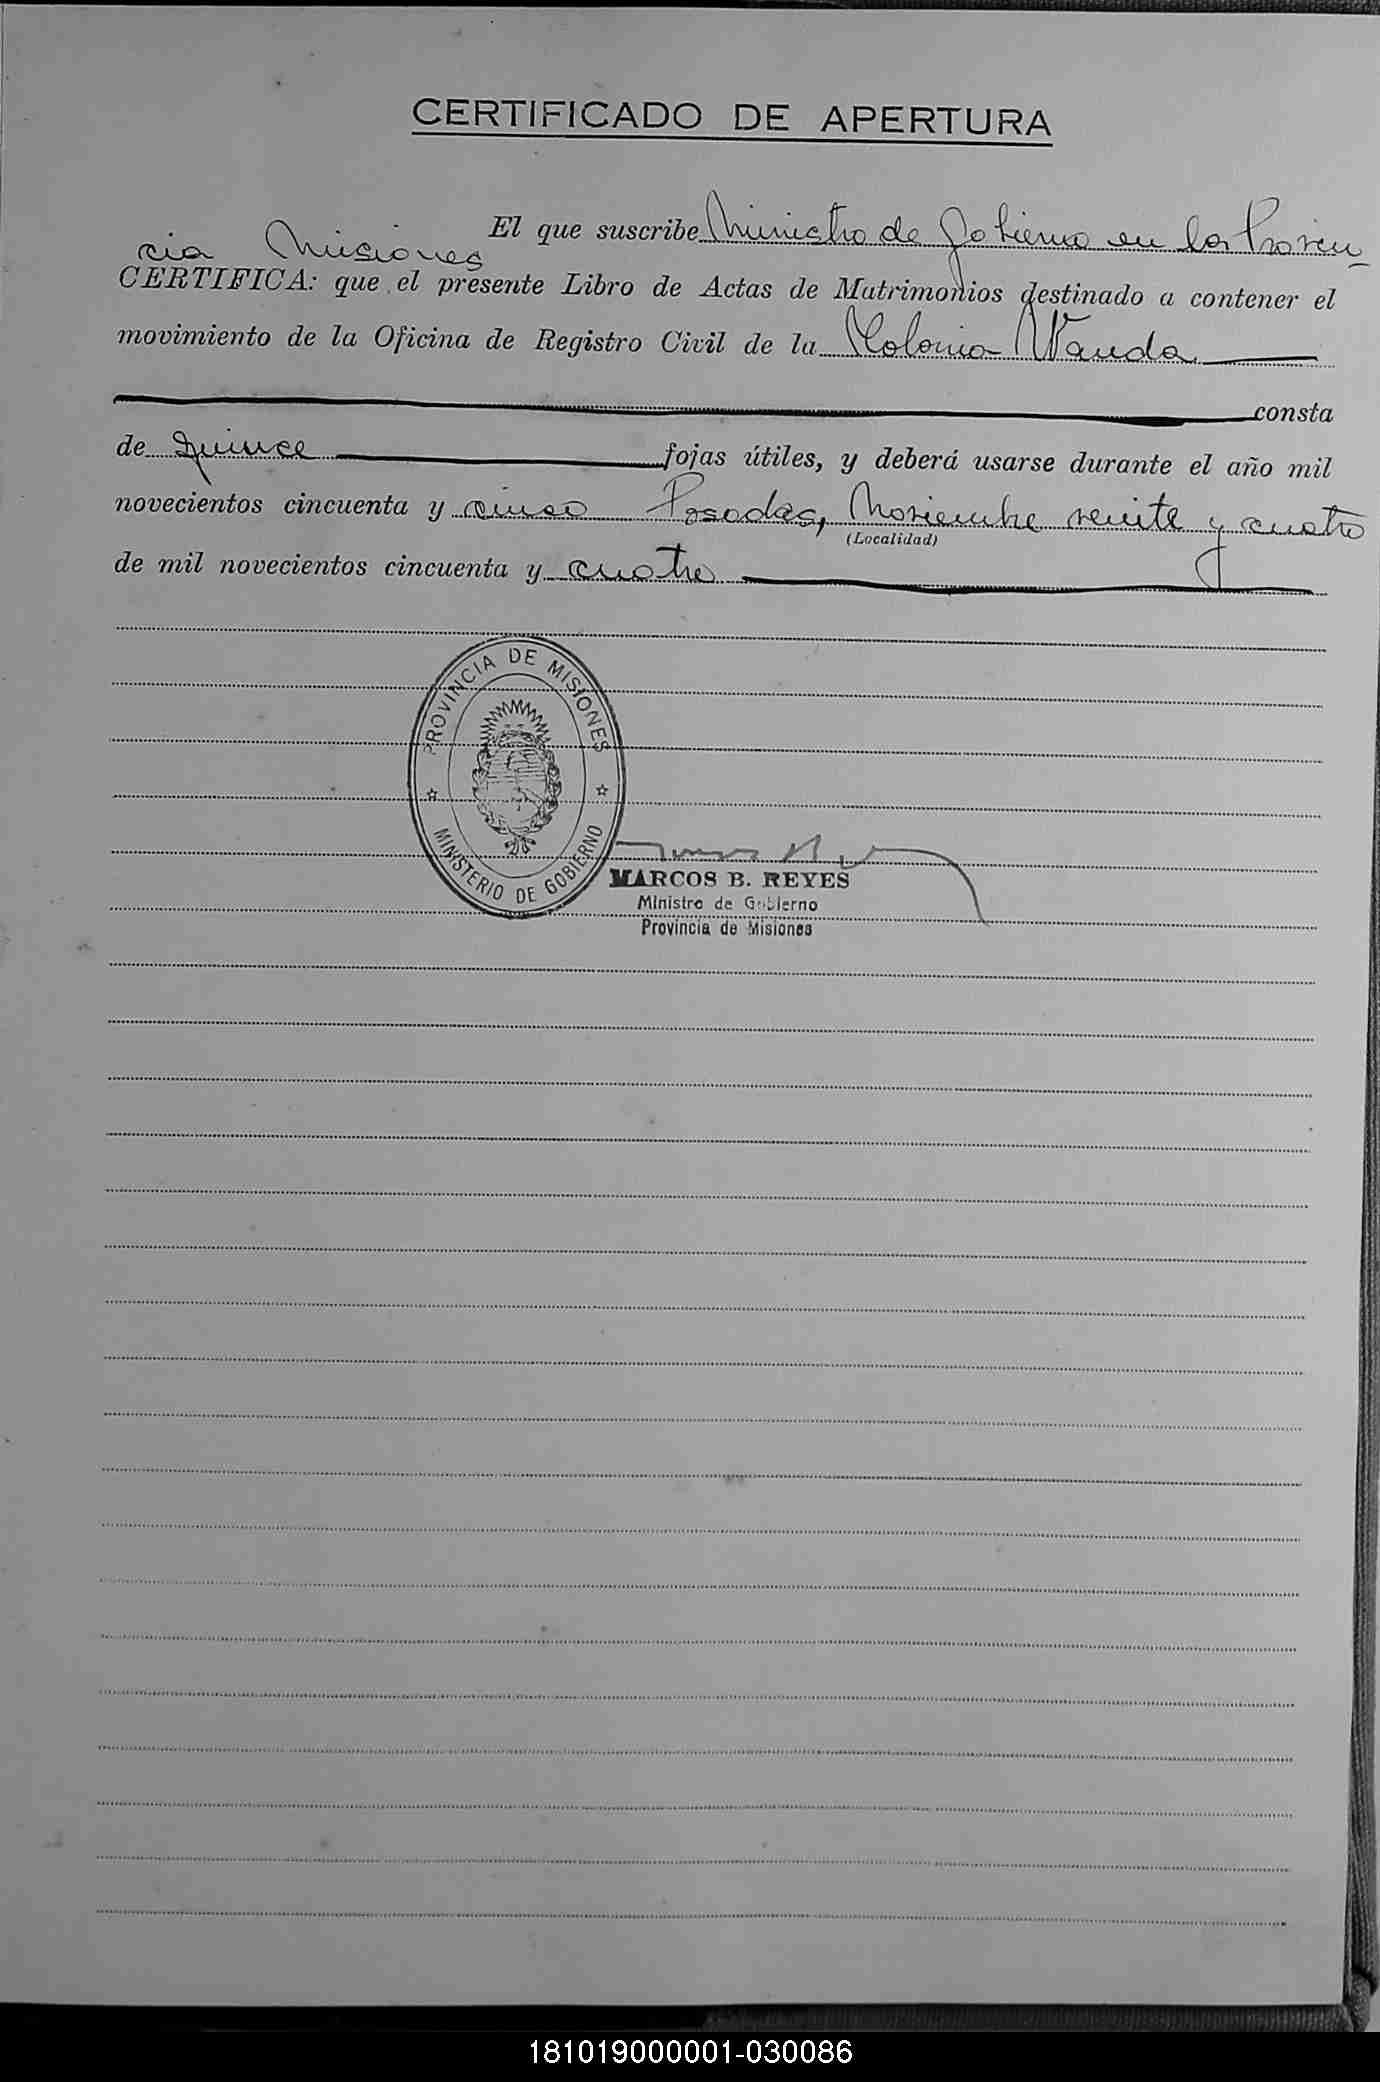 CERTIFICADO DE APERTURA
El que suscribe Ministro de Gobierno en la Provin-
cia Misiones
CERTIFICA: que el presente Libro de Actas de Matrimonios destinado a contener el
movimiento de la Oficina de Registro Civil de la Colonia Wanda
consta
de quince fojas útiles, y deberá usarse durante el año mil
novecientos cincuenta y cinco Posadas, Noviembre veinte y cuatro
(Localidad)
de mil novecientos cincuenta y cuatro
PROVINCIA DE MISIONES
MINISTERIO DE GOBIERNO
MARCOS B. REYES
Ministro de Gobierno
Provincia de Misiones
181019000001-030086